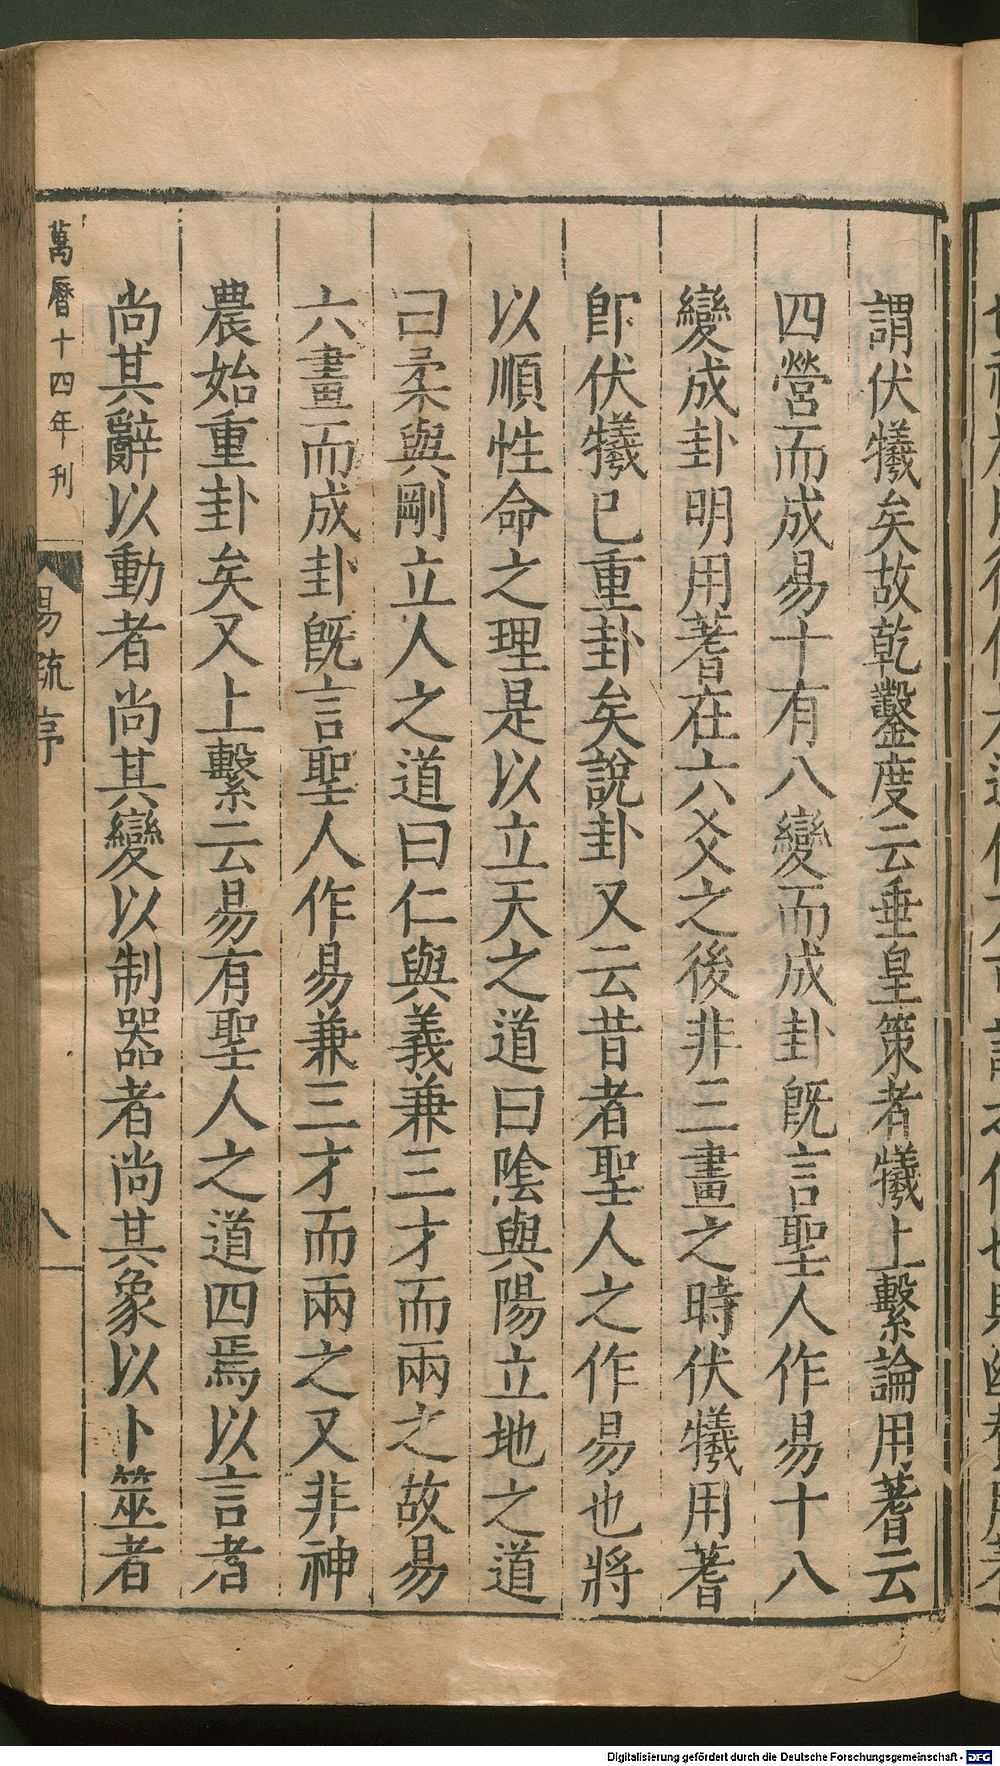 謂伏犧矣故乾鑿度云垂皇策者犧上繫論用蓍云
四營而成易十有八變而成卦旣言聖人作易十八
變成卦明用蓍在六爻之後非三畫之時伏犧用蓍
卽伏犧已重卦矣說卦又云昔者聖人之作易也將
以順性命之理是以立天之道曰陰與陽立地之道
曰柔與剛立人之道曰仁與義兼三才而兩之故易
六畫而成卦旣言聖人作易兼三才而兩之又非神
農始重卦矣又上繫云易有聖人之道四焉以言者
尚其辭以動者尚其變以制器者尚其象以卜筮者
萬曆十四年刊
易疏序
八
Digitalisierung gefördert durch die Deutsche Forschungsgemeinschaft - DFG